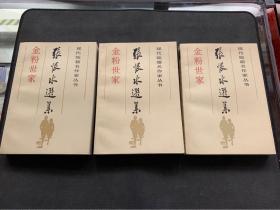 金粉世家
张恨水选集
现代通俗名作家丛书
金粉世家
张恨水选集
现代通俗名作家丛书
金粉世家
张恨水选集
现代通俗名作家丛书